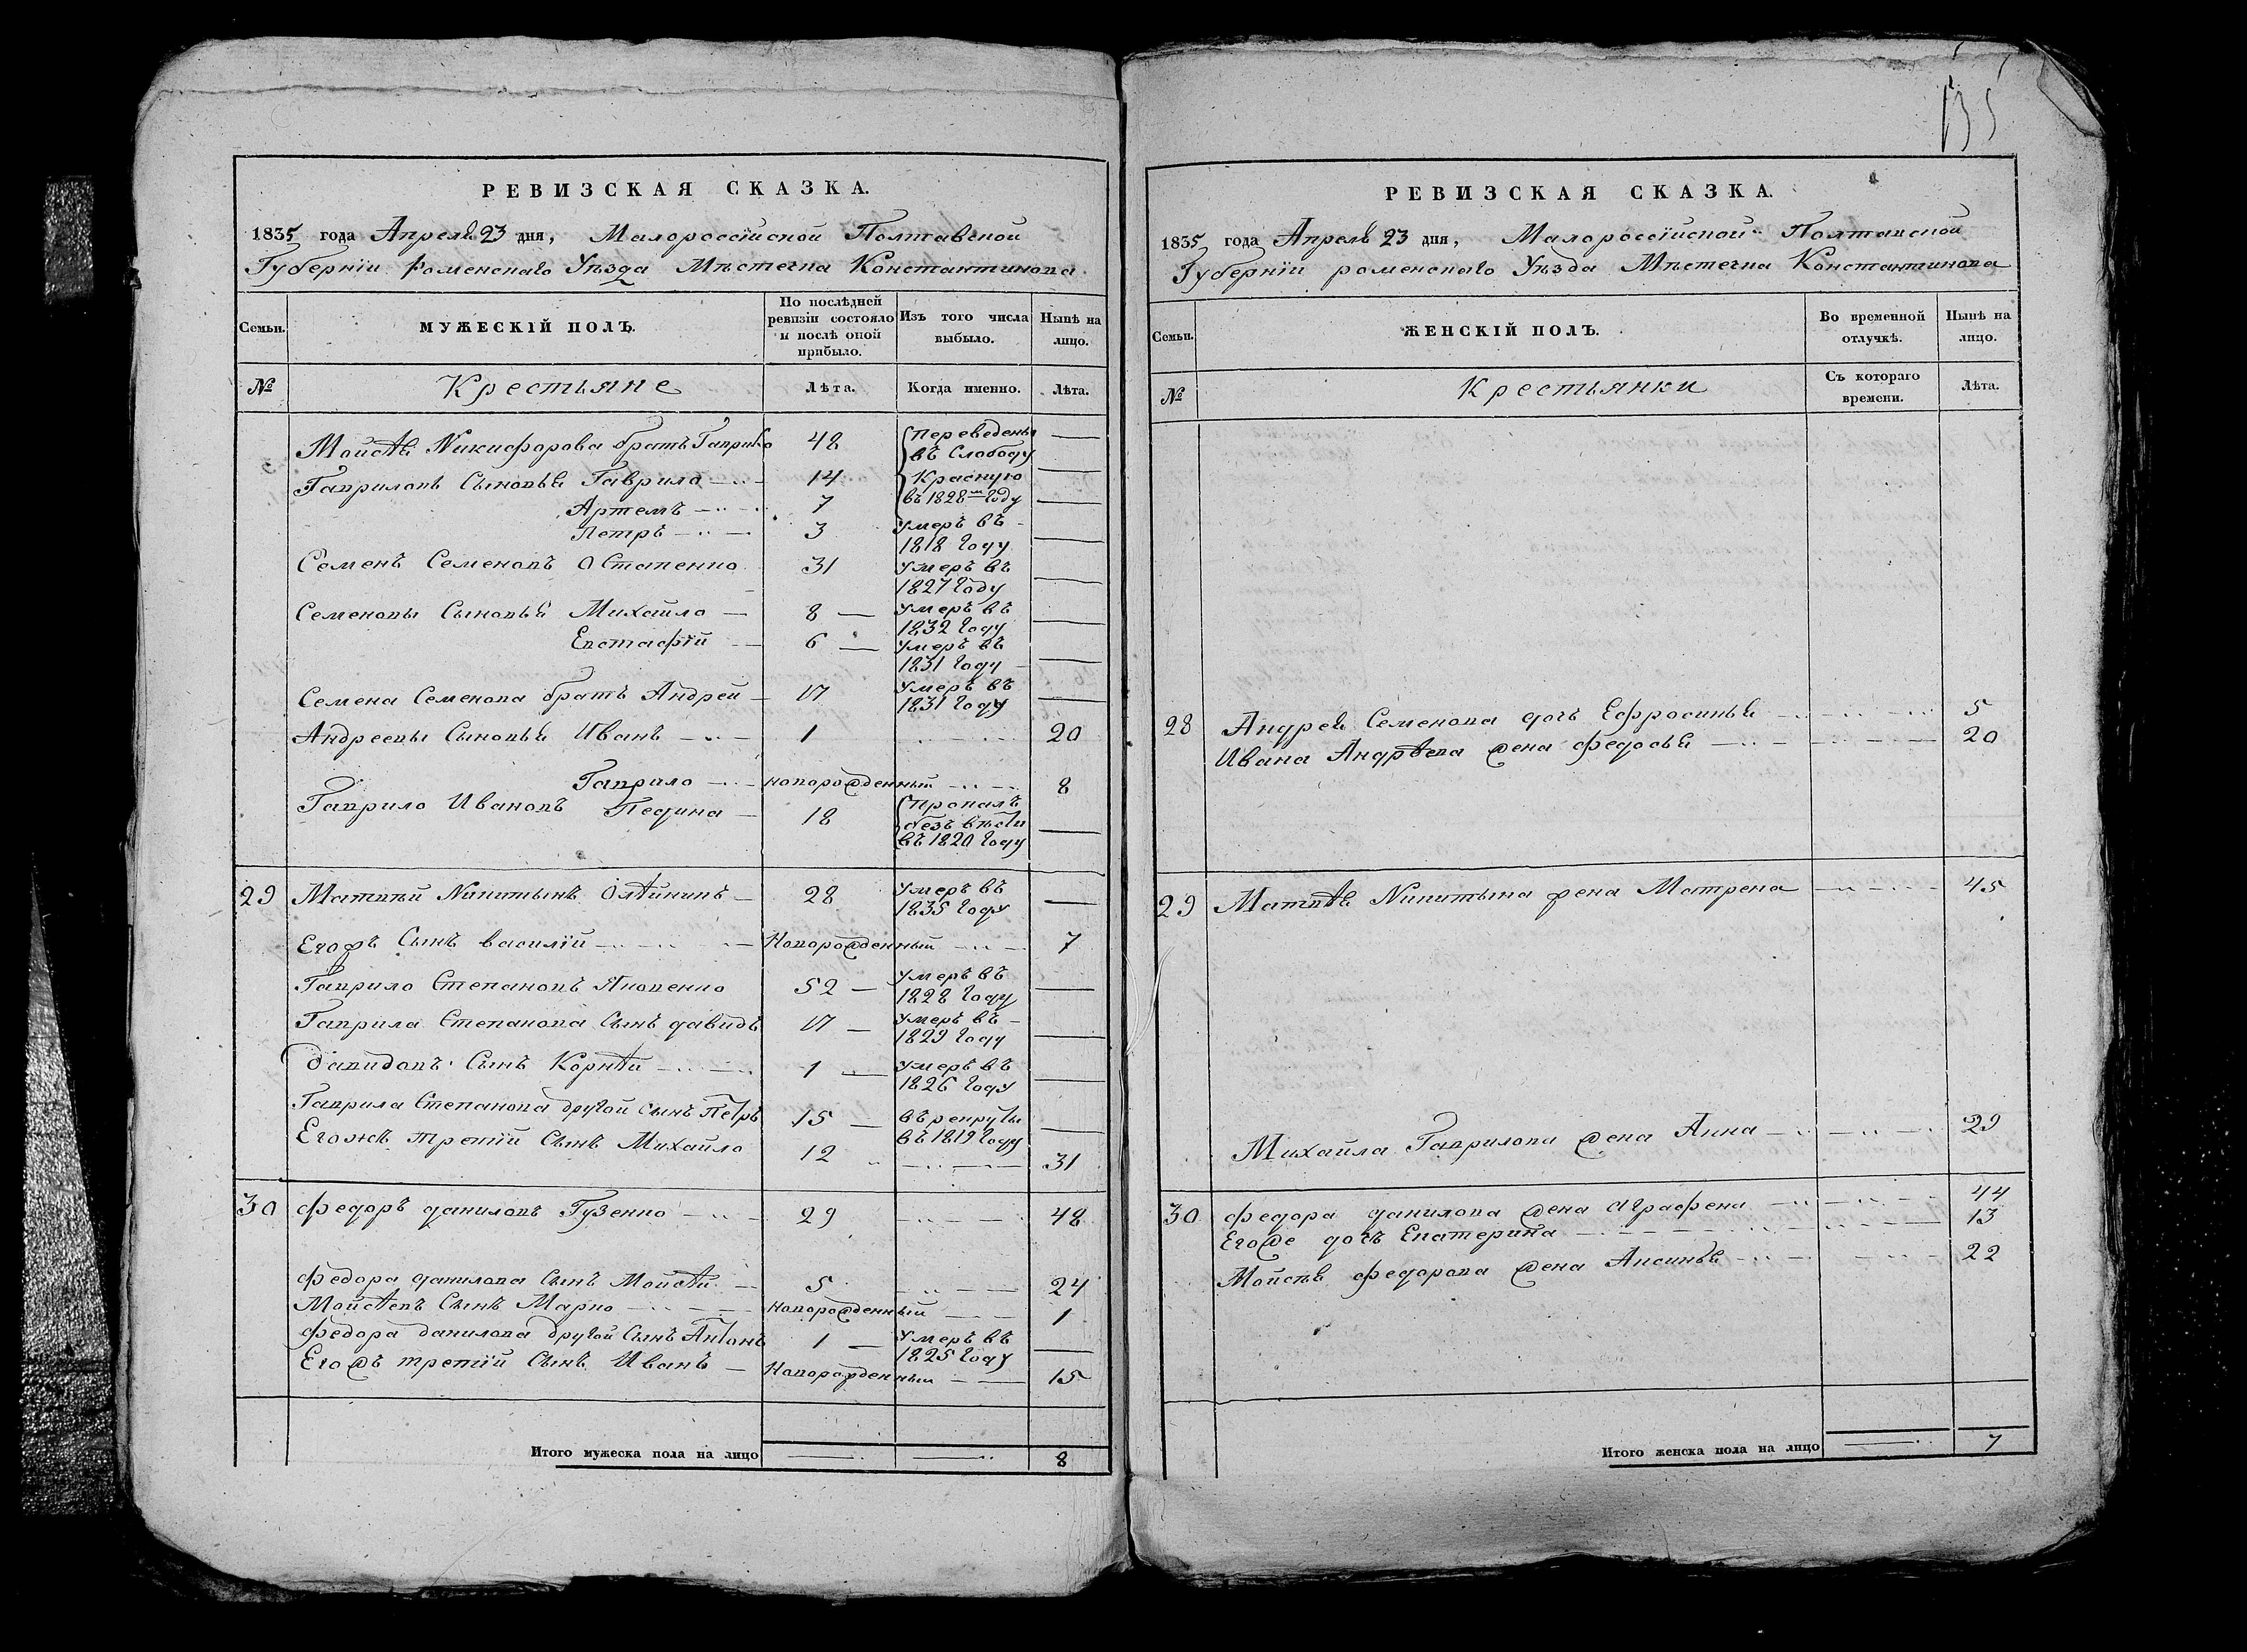 135
РЕВИЗСКАЯ СКАЗКА.
1835 года Апреля 23 дня, Малороссійской Полтавской
Губерніи роменскаго Уѣзда Мѣстечка Константинова
Семьи.
МУЖЕСКІЙ ПОЛЪ.
По послѣдней ревизіи состояло и послѣ оной прибыло.
Изъ того числа выбыло.
Нынѣ на лицо.
№ Крестьяне Лѣта. Когда именно. Лѣта.
Моисѣя Никифорова братъ Гаврило 48 Переведены въ Слободу
Гавриловы Сыновья Гаврило 14 Красную
Артемъ 7 въ 1828м году
Петръ 3 Умеръ въ 1818 году
Семенъ Семеновъ Остапенко 31 Умеръ въ 1827 году
Семеновы Сыновья Михайло 8 Умеръ въ 1832 году
Евстафій 6 Умеръ въ 1831 году
Семена Семенова братъ Андрей 17 Умеръ въ 1831 году
Андреевы Сыновья Иванъ 1 20
Гаврило новорожденный 8
Гаврило Ивановъ Педина 18 Пропалъ безъ вѣсти въ 1820 году
29 Матвѣй Никитынъ Олѣйникъ 28 Умеръ въ 1835 году
Егожъ Сынъ василій Новорожденный 7
Гаврило Степановъ Яковенко 52 Умеръ въ 1828 году
Гаврила Степанова Сынъ давидъ 17 Умеръ въ 1829 году
Давидовъ Сынъ Корнѣй 1 Умеръ въ 1826 году
Гаврила Степанова другой сынъ Петръ 15 въ рекруты въ 1819 году
Егожъ третій Сынъ Михайло 12 31
30 Федоръ даниловъ Гузенко 29 48
Федора данилова Сынъ Моисѣй 5 24
Моисѣевъ Сынъ Марко новорожденный 1
Федора данилова другой Сынъ Антонъ 1 Умеръ въ 1825 году
Егожъ третій Сынъ Иванъ Новорожденный 15
Итого мужеска пола на лицо 8
РЕВИЗСКАЯ СКАЗКА.
1835 года Апреля 23 дня, Малороссійской Полтавской
Губерніи роменскаго Уѣзда Мѣстечка Константинова
Семьи.
ЖЕНСКІЙ ПОЛЪ.
Во временной отлучкѣ.
Нынѣ на лицо.
№ Крестьянки Съ котораго времени. Лѣта.
28 Андрея Семенова дочь Ефросинья 5
Ивана Андрѣева жена федосья 20
29 Матвѣя Никитына жена Матрена 45
Михайла Гаврилова жена Анна 29
30 федора данилова жена Аграфена 44
Егоже дочь Екатерина 13
Мойсѣя федорова жена Аксинья 22
Итого женска пола на лицо 7